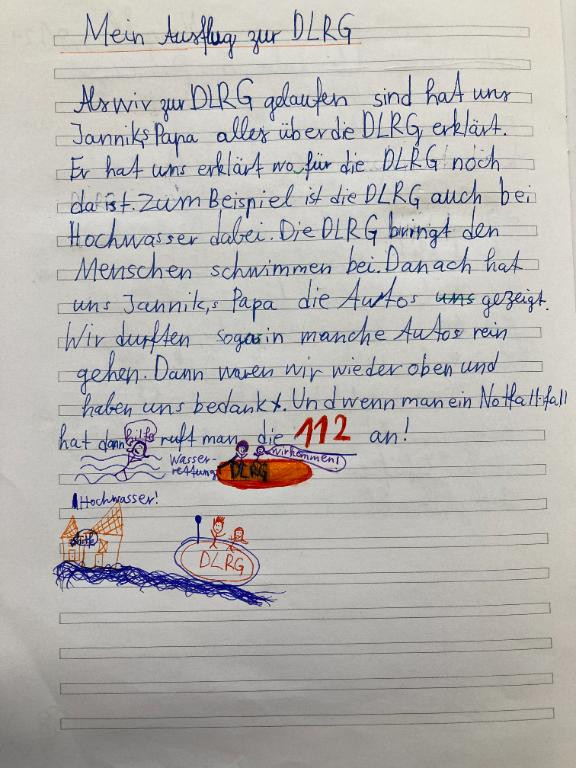 Mein Ausflug zur DLRG
Als wir zur DLRG gelaufen sind hat uns
Janniks Papa alles über die DLRG erklärt.
Er hat uns erklärt wo für die DLRG noch
da ist. Zum Beispiel ist die DLRG auch bei
Hochwasser dabei. Die DLRG bringt den
Menschen schwimmen bei. Danach hat
uns Jannik,s Papa die Autos uns gezeigt.
Wir durften sogar in manche Autos rein
gehen. Dann waren wir wieder oben und
haben uns bedankt. Und wenn man ein Notfall fall
hat dann ruft man die 112 an!
Hilfe
Wasser-
rettung
DLRG
wir kommen!
Hochwasser!
Hilfe
DLRG